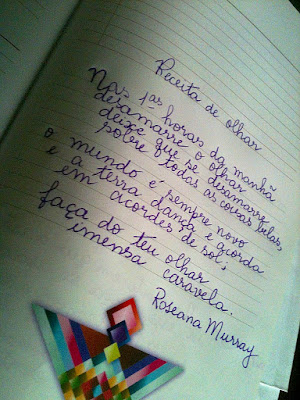 Receita de olhar
Nas 1as horas da manhã
desamarre o olhar
deixe que se desamarre
sobre todas as coisas belas,
o mundo é sempre novo
e a terra dança e acorda
em acordes de sol;
faça do teu olhar
imensa caravela.
Roseana Murray